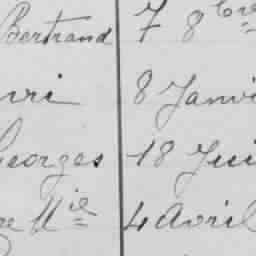 Bertrand 7 8bre
nri 8 Janvi
Georges 18 Jui
re Mie 4 Avril